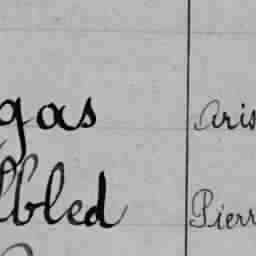 gas Aris
lbled Pierr